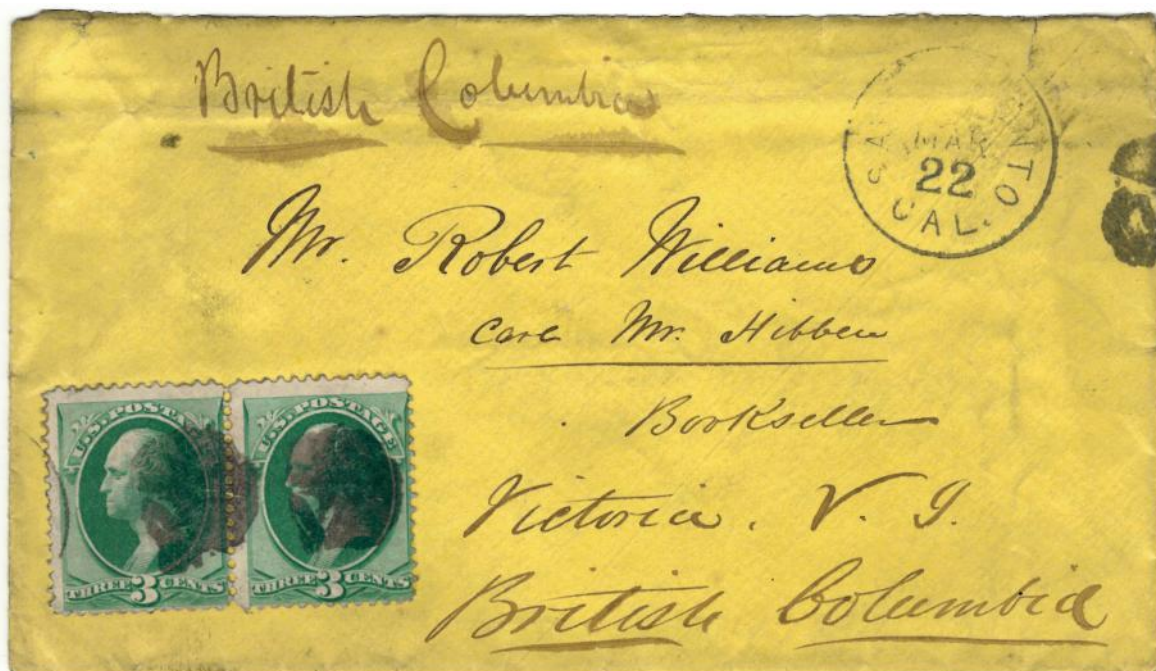 British Columbia
SA NTO
MAR
22
CAL.
Mr. Robert Williams
care Mr. Hibben
Bookseller
Victoria. V. I.
British Columbia
U.S. POSTAGE
THREE 3 CENTS
U.S. POSTAGE
THREE 3 CENTS